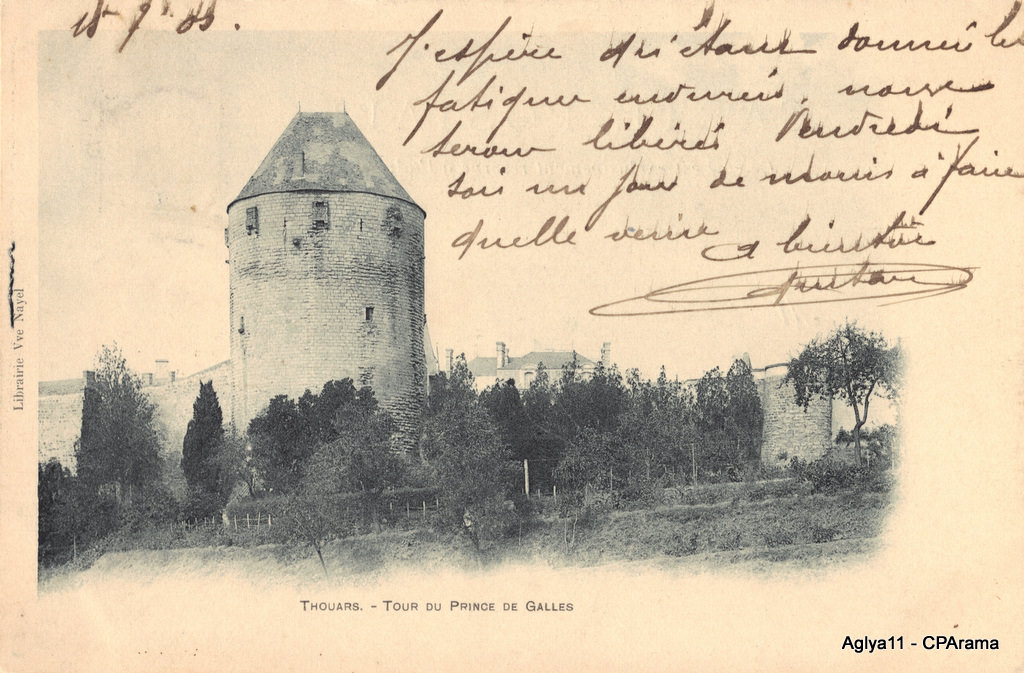 J'espère qu'étant donné les
fatigues endurées, nous
serons libérés Vendredi
soir un jour de moins à faire
quelle veine
A bientôt
Librairie Vve Nayel
THOUARS. - TOUR DU PRINCE DE GALLES
Aglya11 - CPArama